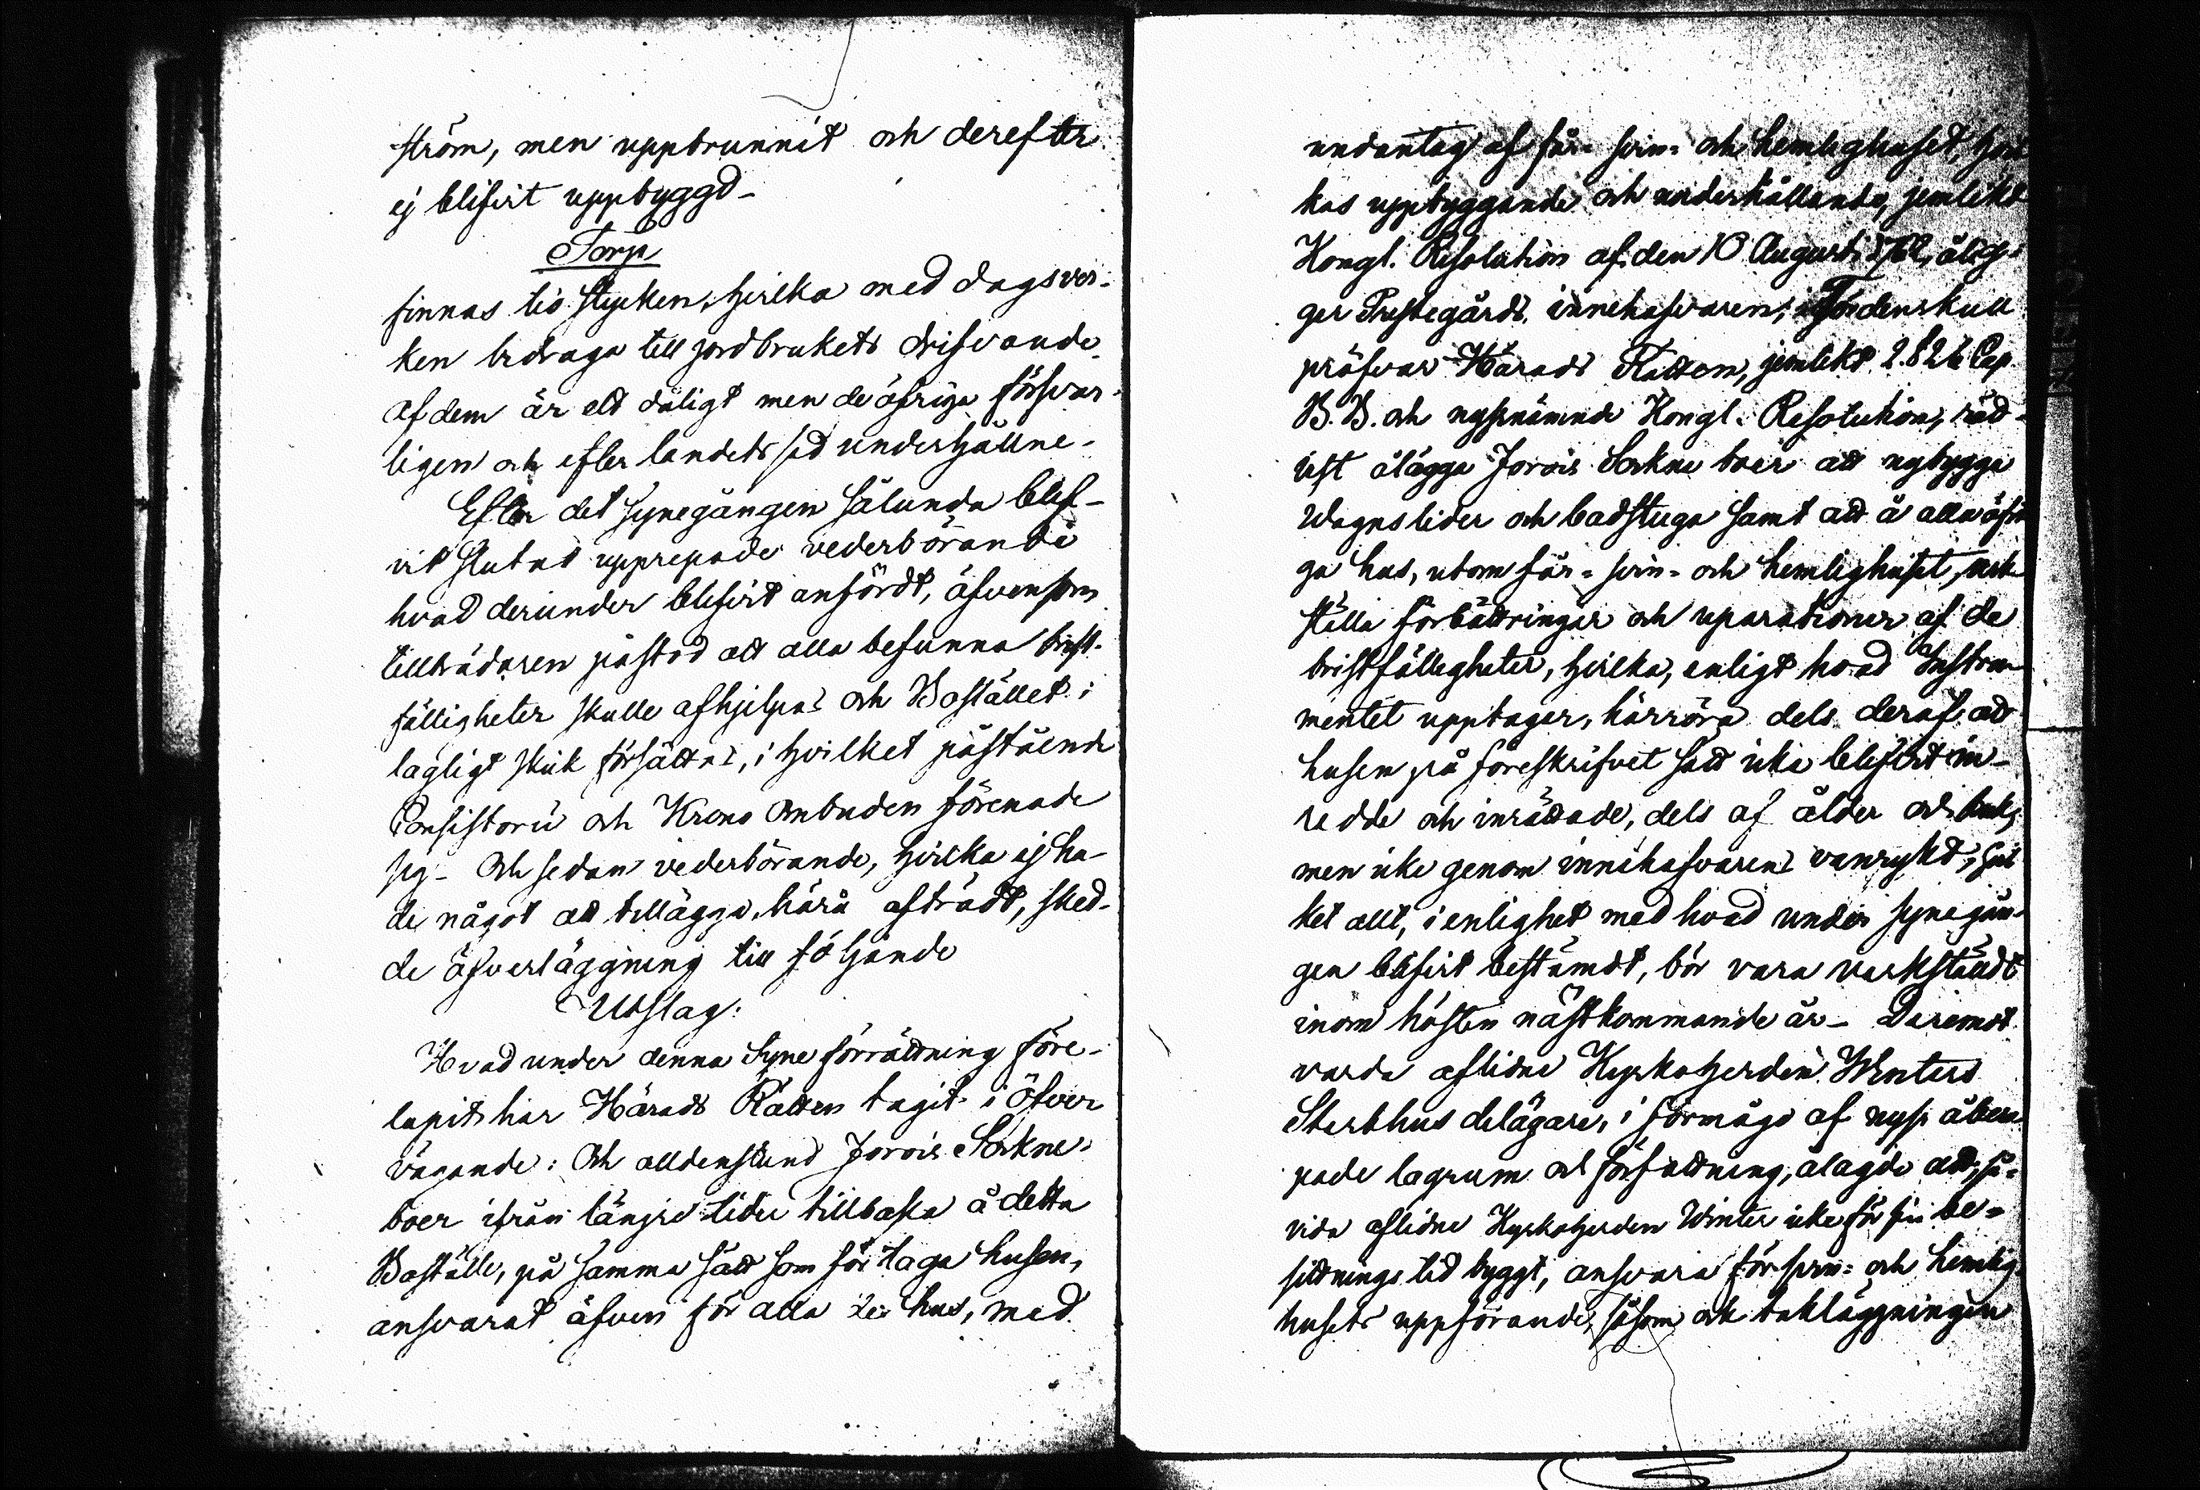 ström, men uppbrunnit och derefter
ej blifvit uppbyggd_
Torp
finnas tio stycken, hvilka med dagsver-
ken bidraga till jordbrukets drifvande.
af dem är ett dåligt men de öfriga försvar-
ligen och efter landets sed underhållne-
Efter det synegången sålunda blif-
vit slutat upprepade vederbörande
hvad derunder blifvit anfördt, äfvensom
tillträdaren påstod att alla befunna brist-
fälligheter skulle afhjelpas och Bostället i
lagligt skick försättas, i hvilket påstående
Consistorii och Krono Ombuden förenade
sig_ Och sedan vederbörande, hvilka ej ha-
de något att tillägga, härå afträdt, sked-
de öfverläggning till följande
Utslag:
Hvad under denna Syneförrättning före-
lupit har Härads Rätten tagit i öfver
vägande: Och alldenstund Jorois Sokne-
boer ifrån längre tider tillbaka å detta
Boställe, på samma sätt som för laga husen,
ansvarat äfven för alla hus, med
undantag af får- svin- och hemlighuset, hvil-
kas uppbyggande och underhållande, jemlikt
Kongl. Resolution af den 10 Augusti 1762, ålig-
ger Prestegårds innehafvaren; Fördenskull
pröfvar Härads Rätten, jemlikt 2. § 26 Cap.
B. B. och nyssnämnde Kongl. Resolution, räd-
vist ålägga Jorois Sokne boer att nybygga
Wagnslider och badstuga samt att å alla öfri-
ga hus, utom får- svin- och hemlighuset, verk-
ställa förbättringar och reparationer af de
bristfälligheter, hvilka, enligt hvad Instru-
mentet upptager, härröra dels deraf att
husen på föreskrifvet sätt icke blifvit in-
redde och inrättade, dels af ålder och bruk,
men icke genom innehafvarens vanrykt, hvil-
ket allt, i enlighet med hvad under synegån-
gen blifvit bestämdt, bör vara verkställdt
inom hösten nästkommande år_ Deremot
varda aflidne Kyrkoherden Winters
Sterbhus delägare, i förmågo af nyss åbero-
pade lagrum och författning, ålagde att, så-
vida aflidne Kyrkoherden Winter icke för sin be-
sittningstid byggt, ansvara för svin- och hemlig-
husets uppförande, såsom och takläggningen